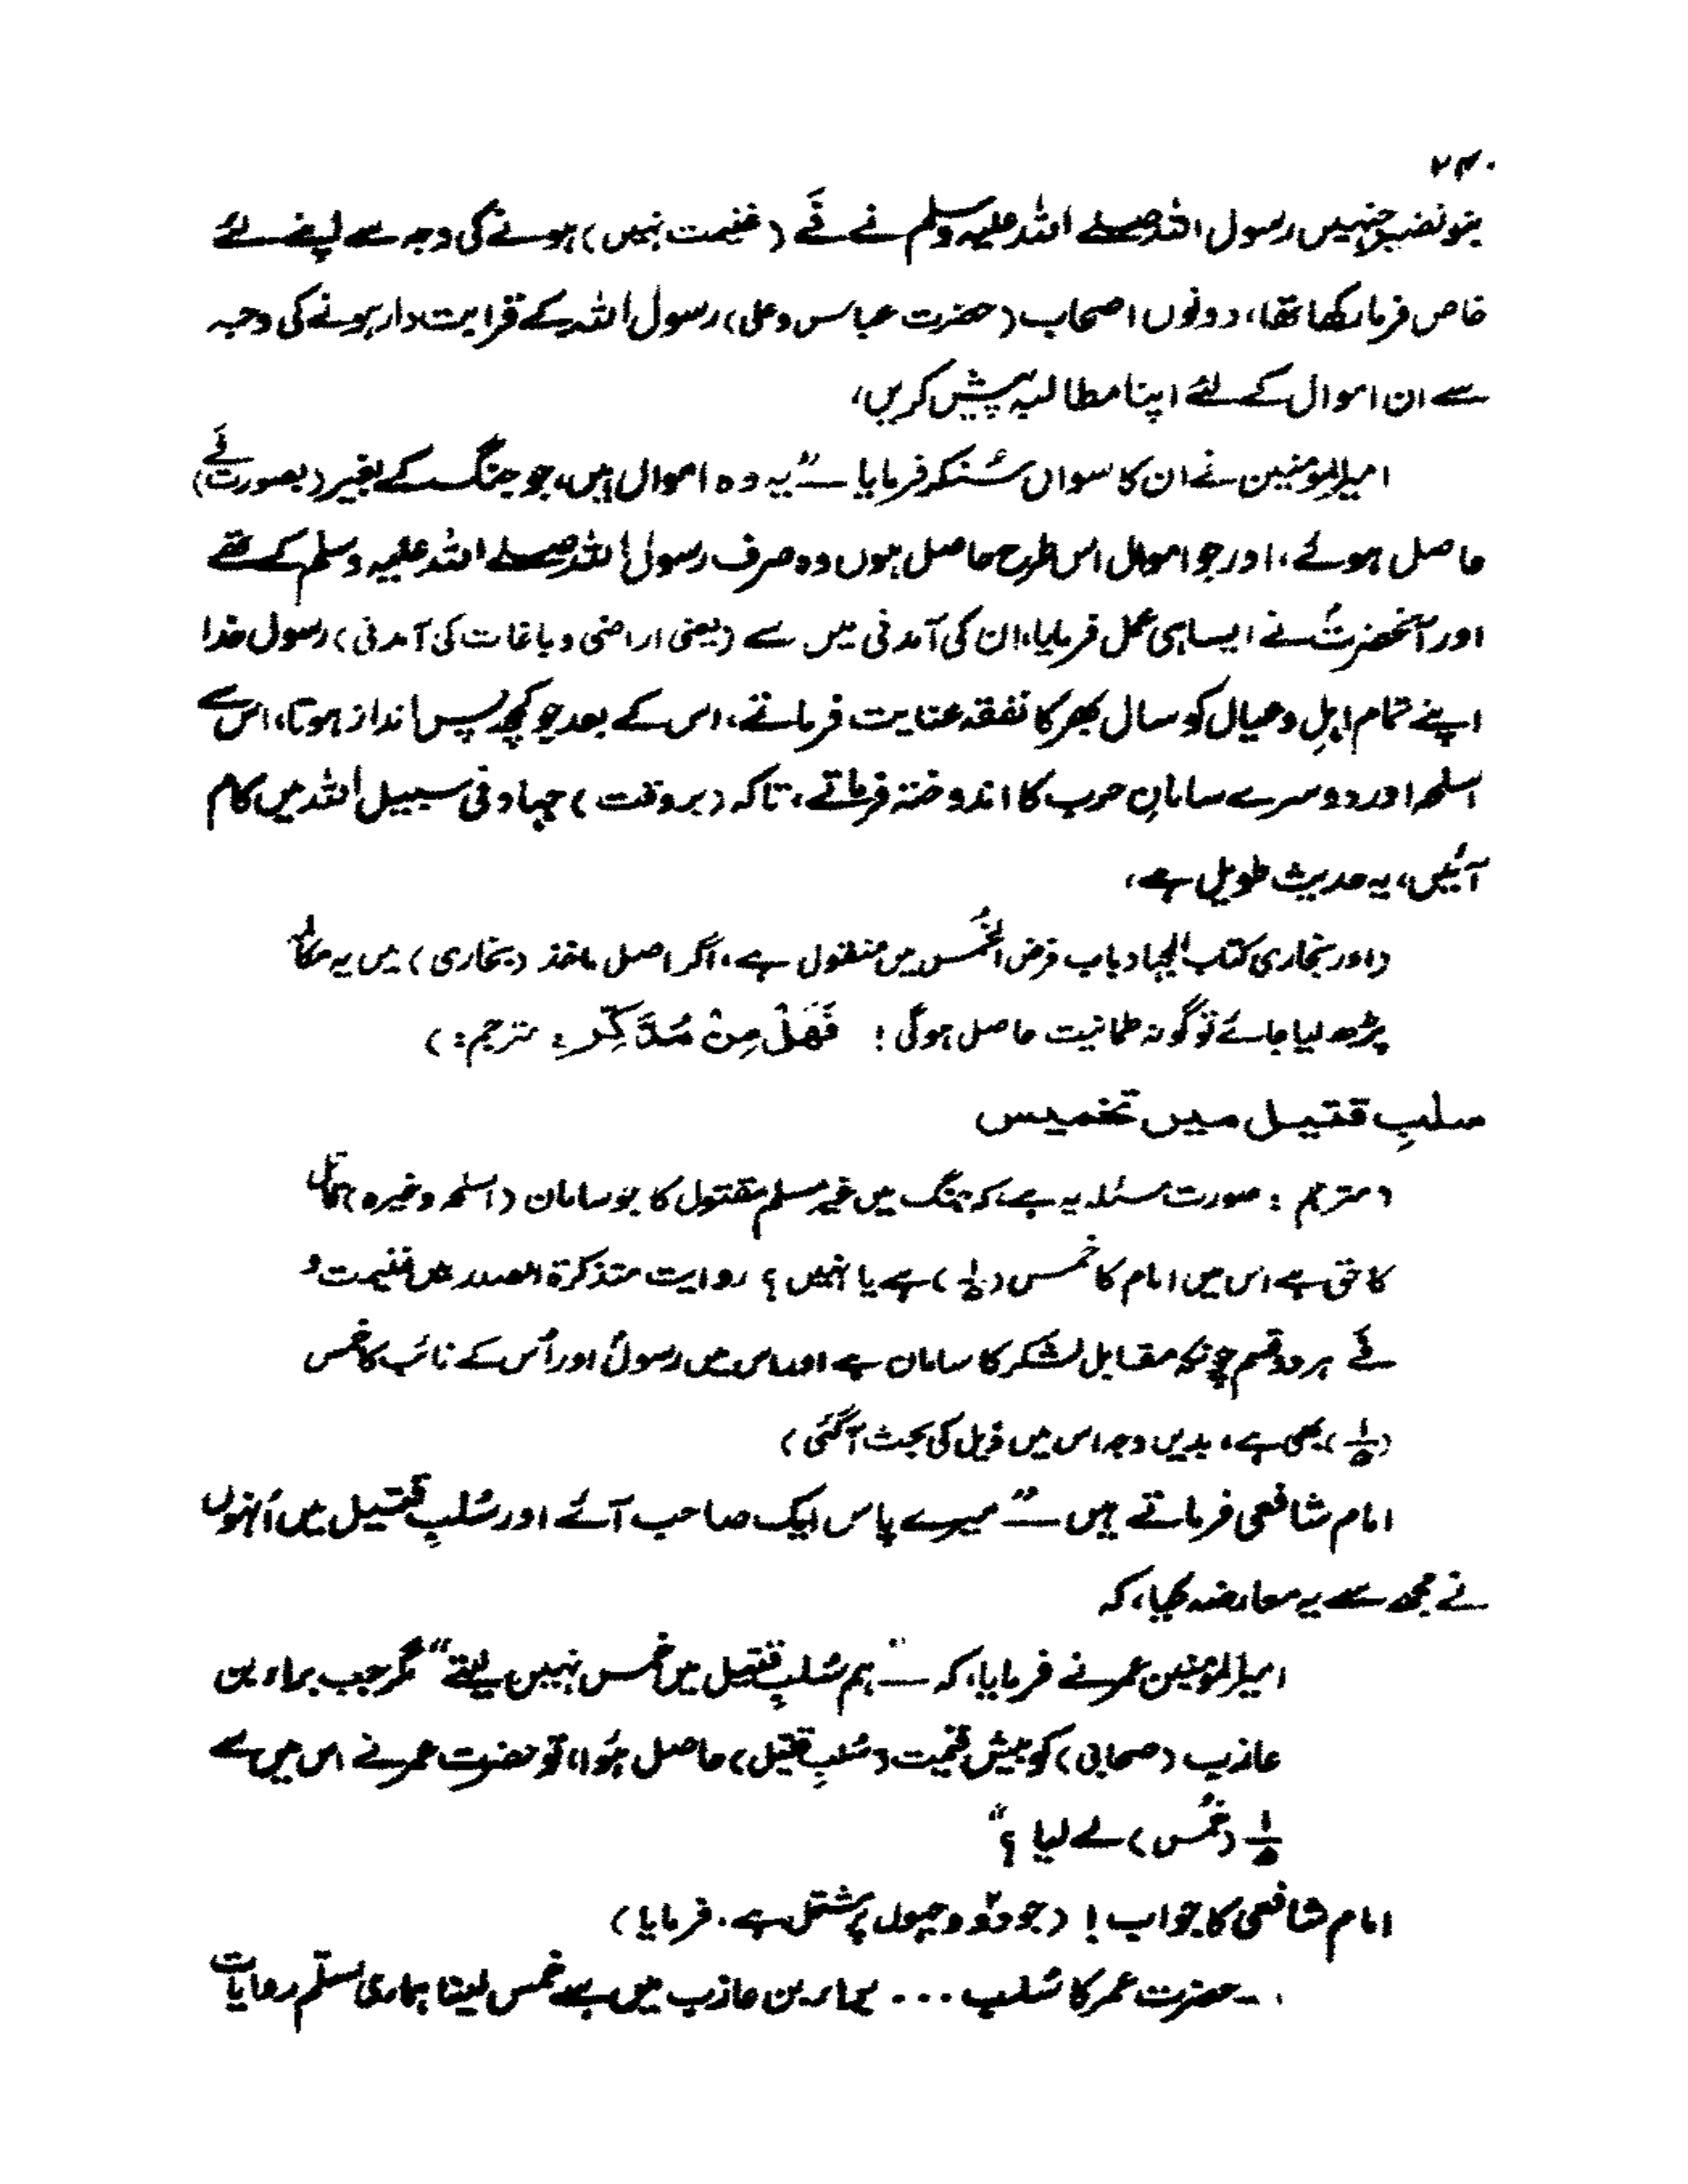 ۲۴۰
بنونضیر جنہیں رسول اللہ صلے اللہ علیہ وسلم نے فَے (غنیمت نہیں) ہونے کی وجہ سے لپنے لئے
خاص فرما رکھا تھا، دونوں اصحاب (حضرت عباس وعلی) رسول اللہ کے قرابت دار ہونے کی وجہ
سے ان اموال کے لئے اپنا مطالبہ پیش کریں،
امیرالمؤمنین نے ان کا سوال سُنکر فرمایا — "یہ وہ اموال ہیں، جو جنگ کے بغیر (بصورت فَے)
حاصل ہوئے، اور جو اموال اس طرح حاصل ہوں وہ صرف رسول اللہ صلے اللہ علیہ وسلم کے تھے
اور آنحضرتؐ نے ایسا ہی عمل فرمایا، ان کی آمدنی میں سے (یعنی اراضی و باغات کی آمدنی) رسول خدا
اپنے تمام اہلِ وعیال کو سال بھر کا نفقہ عنایت فرماتے، اس کے بعد جو کچھ پس انداز ہوتا، اس سے
اسلحہ اور دوسرے سامانِ حرب کا اندوختہ فرماتے، تاکہ (بروقت) جہاد فی سبیل اللہ میں کام
آئیں، یہ حدیث طویل ہے،
(اور بخاری کتاب الجہاد باب فرض الخُمس میں منقول ہے، اگر اصل ماخذ (بخاری) میں یہ مکالمہ
پڑھ لیا جائے تو گونہ طمانیت حاصل ہوگی! فَهَلْ مِنْ مُدَّكِرٍ: مترجم:)
سلبِ قتیل میں تخمیس
(مترجم: صورت مسئلہ یہ ہے، کہ جنگ میں غیر مسلم مقتول کا جو سامان (اسلحہ وغیرہ) قاتل
کا حق ہے اس میں امام کا خمس (۱/۵) ہے یا نہیں؟ روایت متذکرۃ الصدر میں غنیمت و
فَے ہر دو قسم چونکہ مقابل لشکر کا سامان ہے اور اس میں رسولؐ اور اُس کے نائب کا خمس
(۱/۵) بھی ہے، بدیں وجہ اس میں ذیل کی بحث آگئی)
امام شافعی فرماتے ہیں — "میرے پاس ایک صاحب آئے اور سُلبِ قتیل میں اُنہوں
نے مجھ سے یہ معارضہ کیا، کہ
امیرالمؤمنین عمر نے فرمایا، کہ — "ہم سُلبِ قتیل میں خمس نہیں لیتے" مگر جب براء بن
عازب (صحابی) کو بیش قیمت (سُلبِ قتیل) حاصل ہُوا، تو حضرت عمر نے اس میں سے
۱/۵ (خُمس) لے لیا ؟"
امام شافعی کا جواب! (جو دو وجہوں پر مشتمل ہے. فرمایا)
۱ -- حضرت عمر کا سُلب ... براء بن عازب میں سے خمس لینا ہماری مسلّم روایات